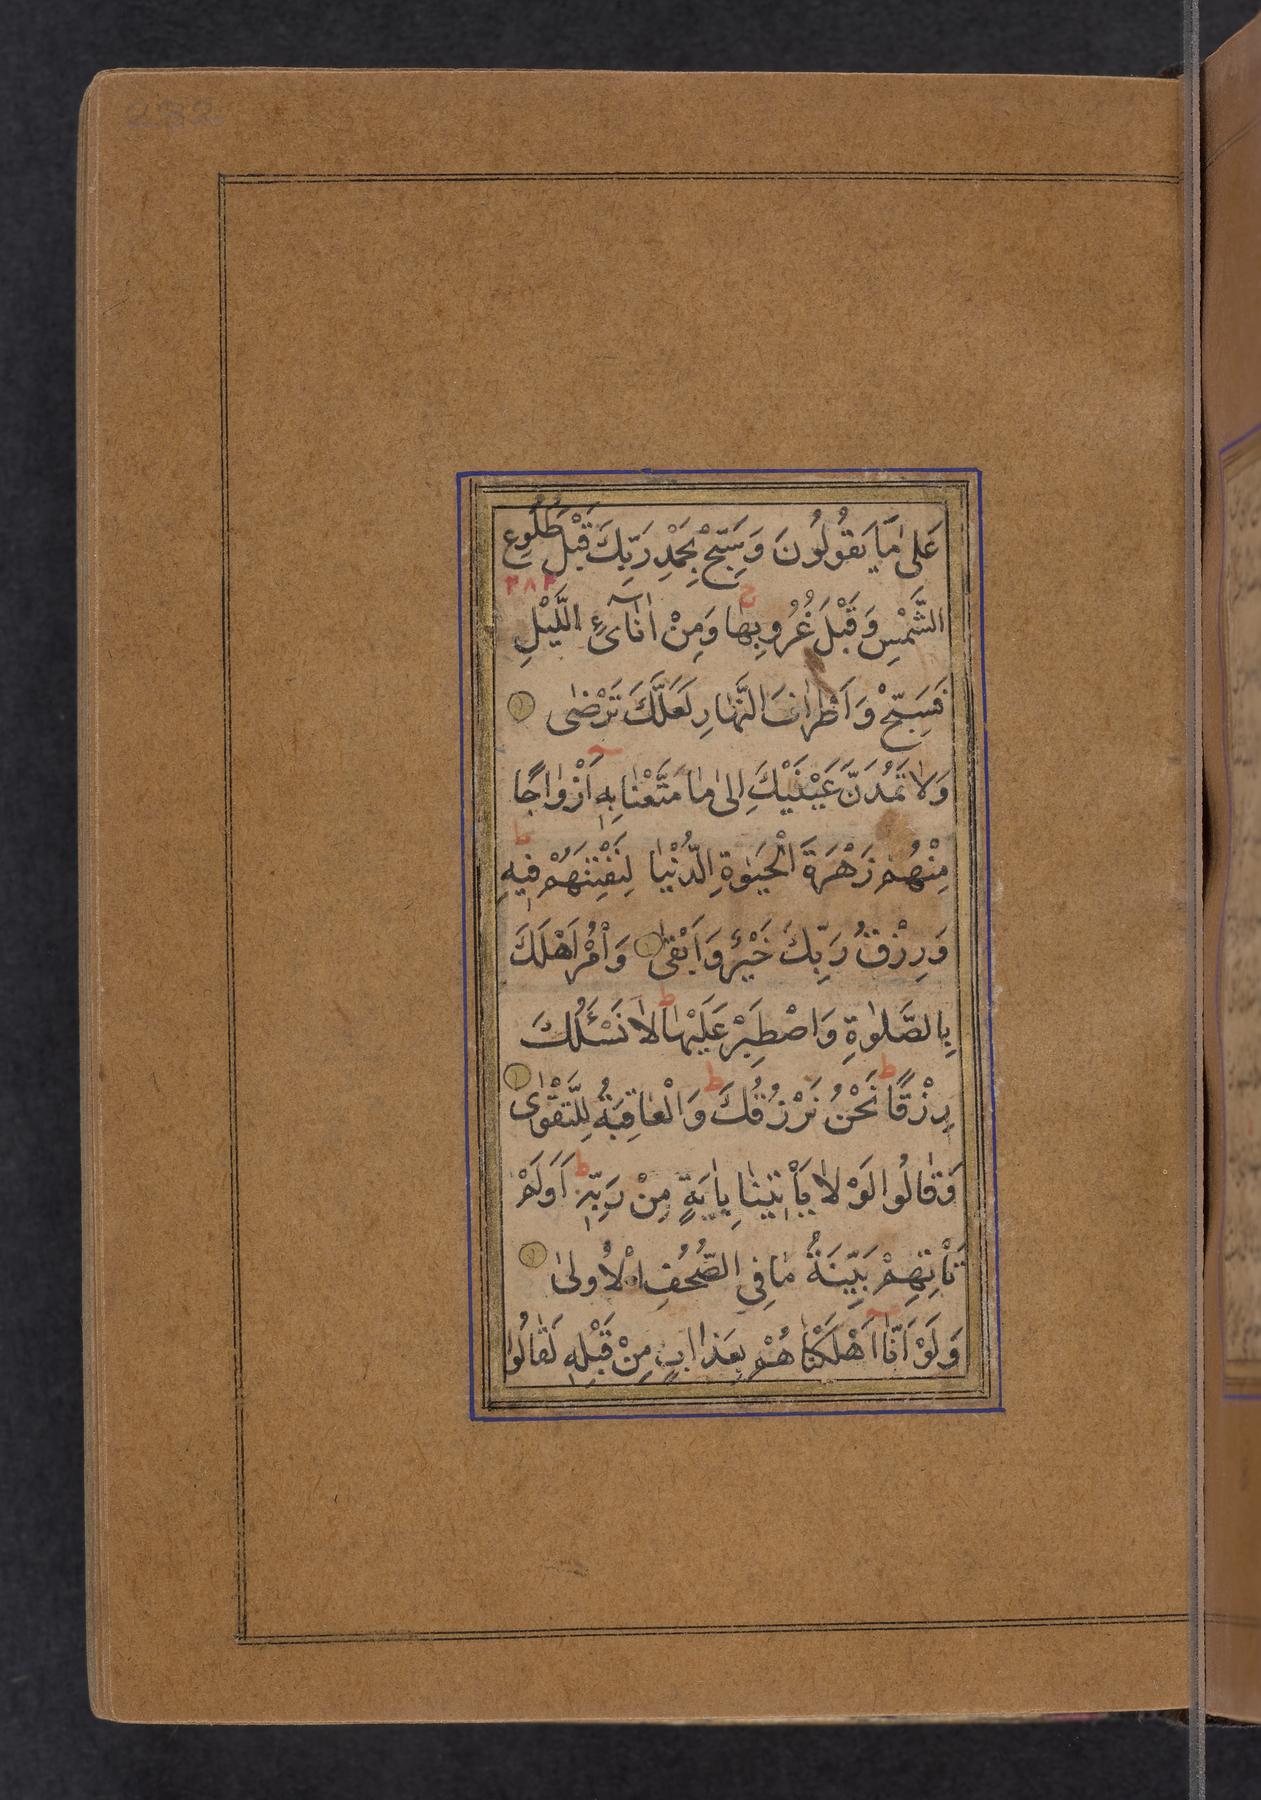 282
عَلىٰ مَا يَقُولُونَ وَسَبِّحْ بِحَمْدِ رَبِّكَ قَبْلَ طُلُوعِ
۲۸۲
الشَّمْسِ وَقَبْلَ غُرُوبِهٰا وَمِنْ اٰنٰآئِ الَّيْلِ
فَسَبِّحْ وَاَطْرٰافَ النَّهٰارِ لَعَلَّكَ تَرْضٰى
وَلاٰ تَمُدَّنَّ عَيْنَيْكَ اِلىٰ مٰا مَتَّعْنٰا بِهٖ اَزْوٰاجًا
مِنْهُمْ زَهْرَةَ الْحَيٰوةِ الدُّنْيٰا لِنَفْتِنَهُمْ فيٖهِ
وَرِزْقُ رَبِّكَ خَيْرٌ وَاَبْقىٰ وَاْمُرْ اَهْلَكَ
بِالصَّلوٰةِ وَاصْطَبِرْ عَلَيْهٰا لاٰ نَسْئَلُكَ
رِزْقًا نَحْنُ نَرْزُقُكَ وَالْعٰاقِبَةُ لِلتَّقْوٰى
وَقٰالُوا لَوْلاٰ يَأْتيٖنٰا بِاٰيَةٍ مِنْ رَبِّهٖ اَوَلَمْ
تَأْتِهِمْ بَيِّنَةُ مٰا فِي الصُّحُفِ الْاُولىٰ
وَلَوْ اَنّٰا اَهْلَكْنٰاهُمْ بِعَذٰابٍ مِنْ قَبْلِهٖ لَقٰالُوا